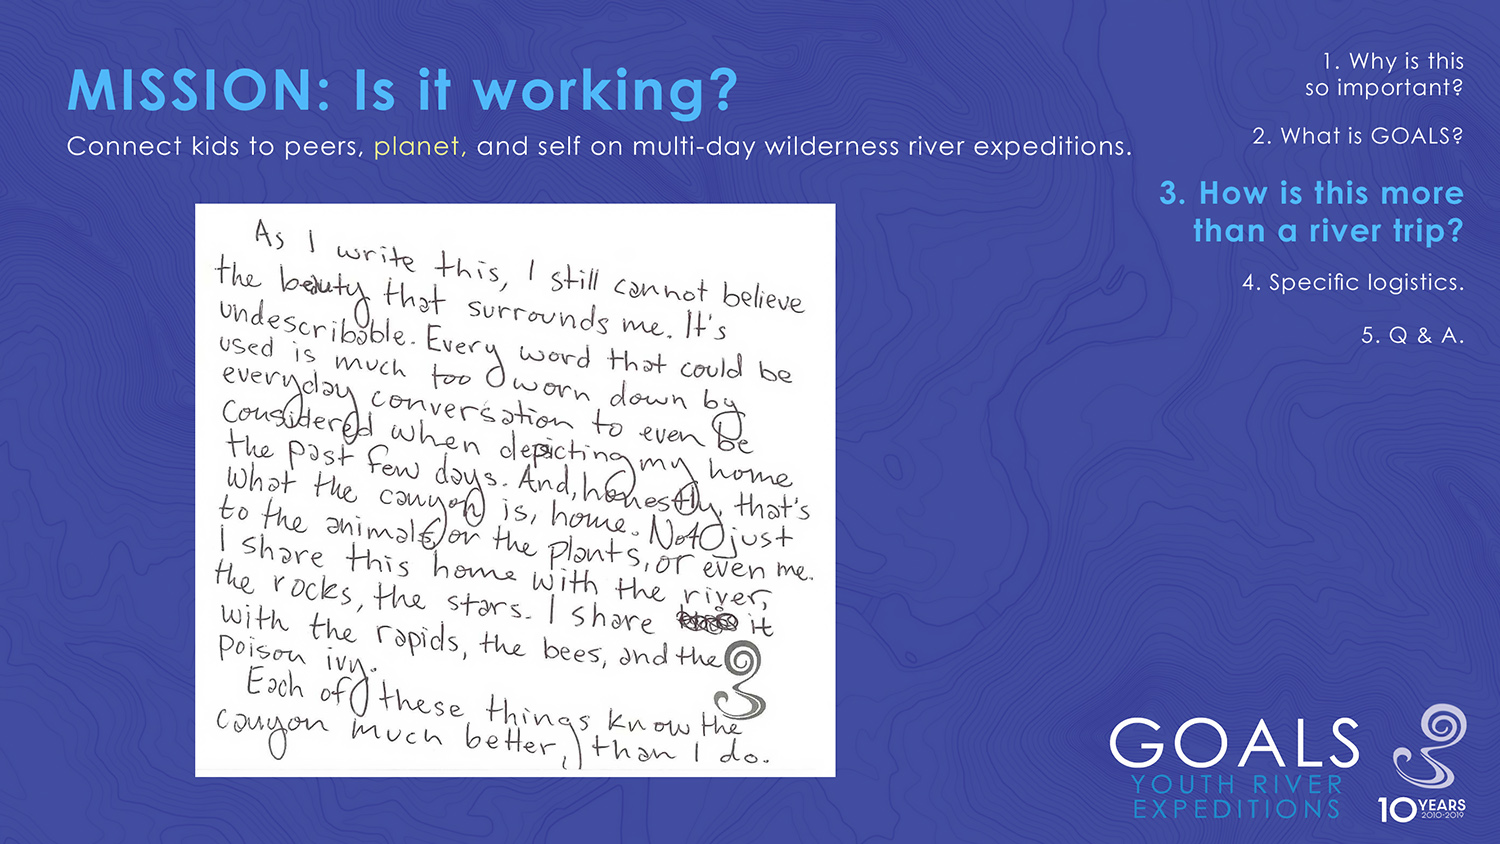 MISSION: Is it working?
Connect kids to peers, planet, and self on multi-day wilderness river expeditions.
1. Why is this
so important?
2. What is GOALS?
3. How is this more
than a river trip?
4. Specific logistics.
5. Q & A.
As I write this, I still cannot believe
the beauty that surrounds me. It's
undescribable. Every word that could be
used is much too worn down by
everyday conversation to even be
considered when depicting my home
the past few days. And, honestly, that's
what the canyon is, home. Not just
to the animals, or the plants, or even me.
I share this home with the river,
the rocks, the stars. I share it
with the rapids, the bees, and the
poison ivy.
Each of these things know the
canyon much better, than I do.
GOALS
YOUTH RIVER
EXPEDITIONS
10 YEARS
2010-2019